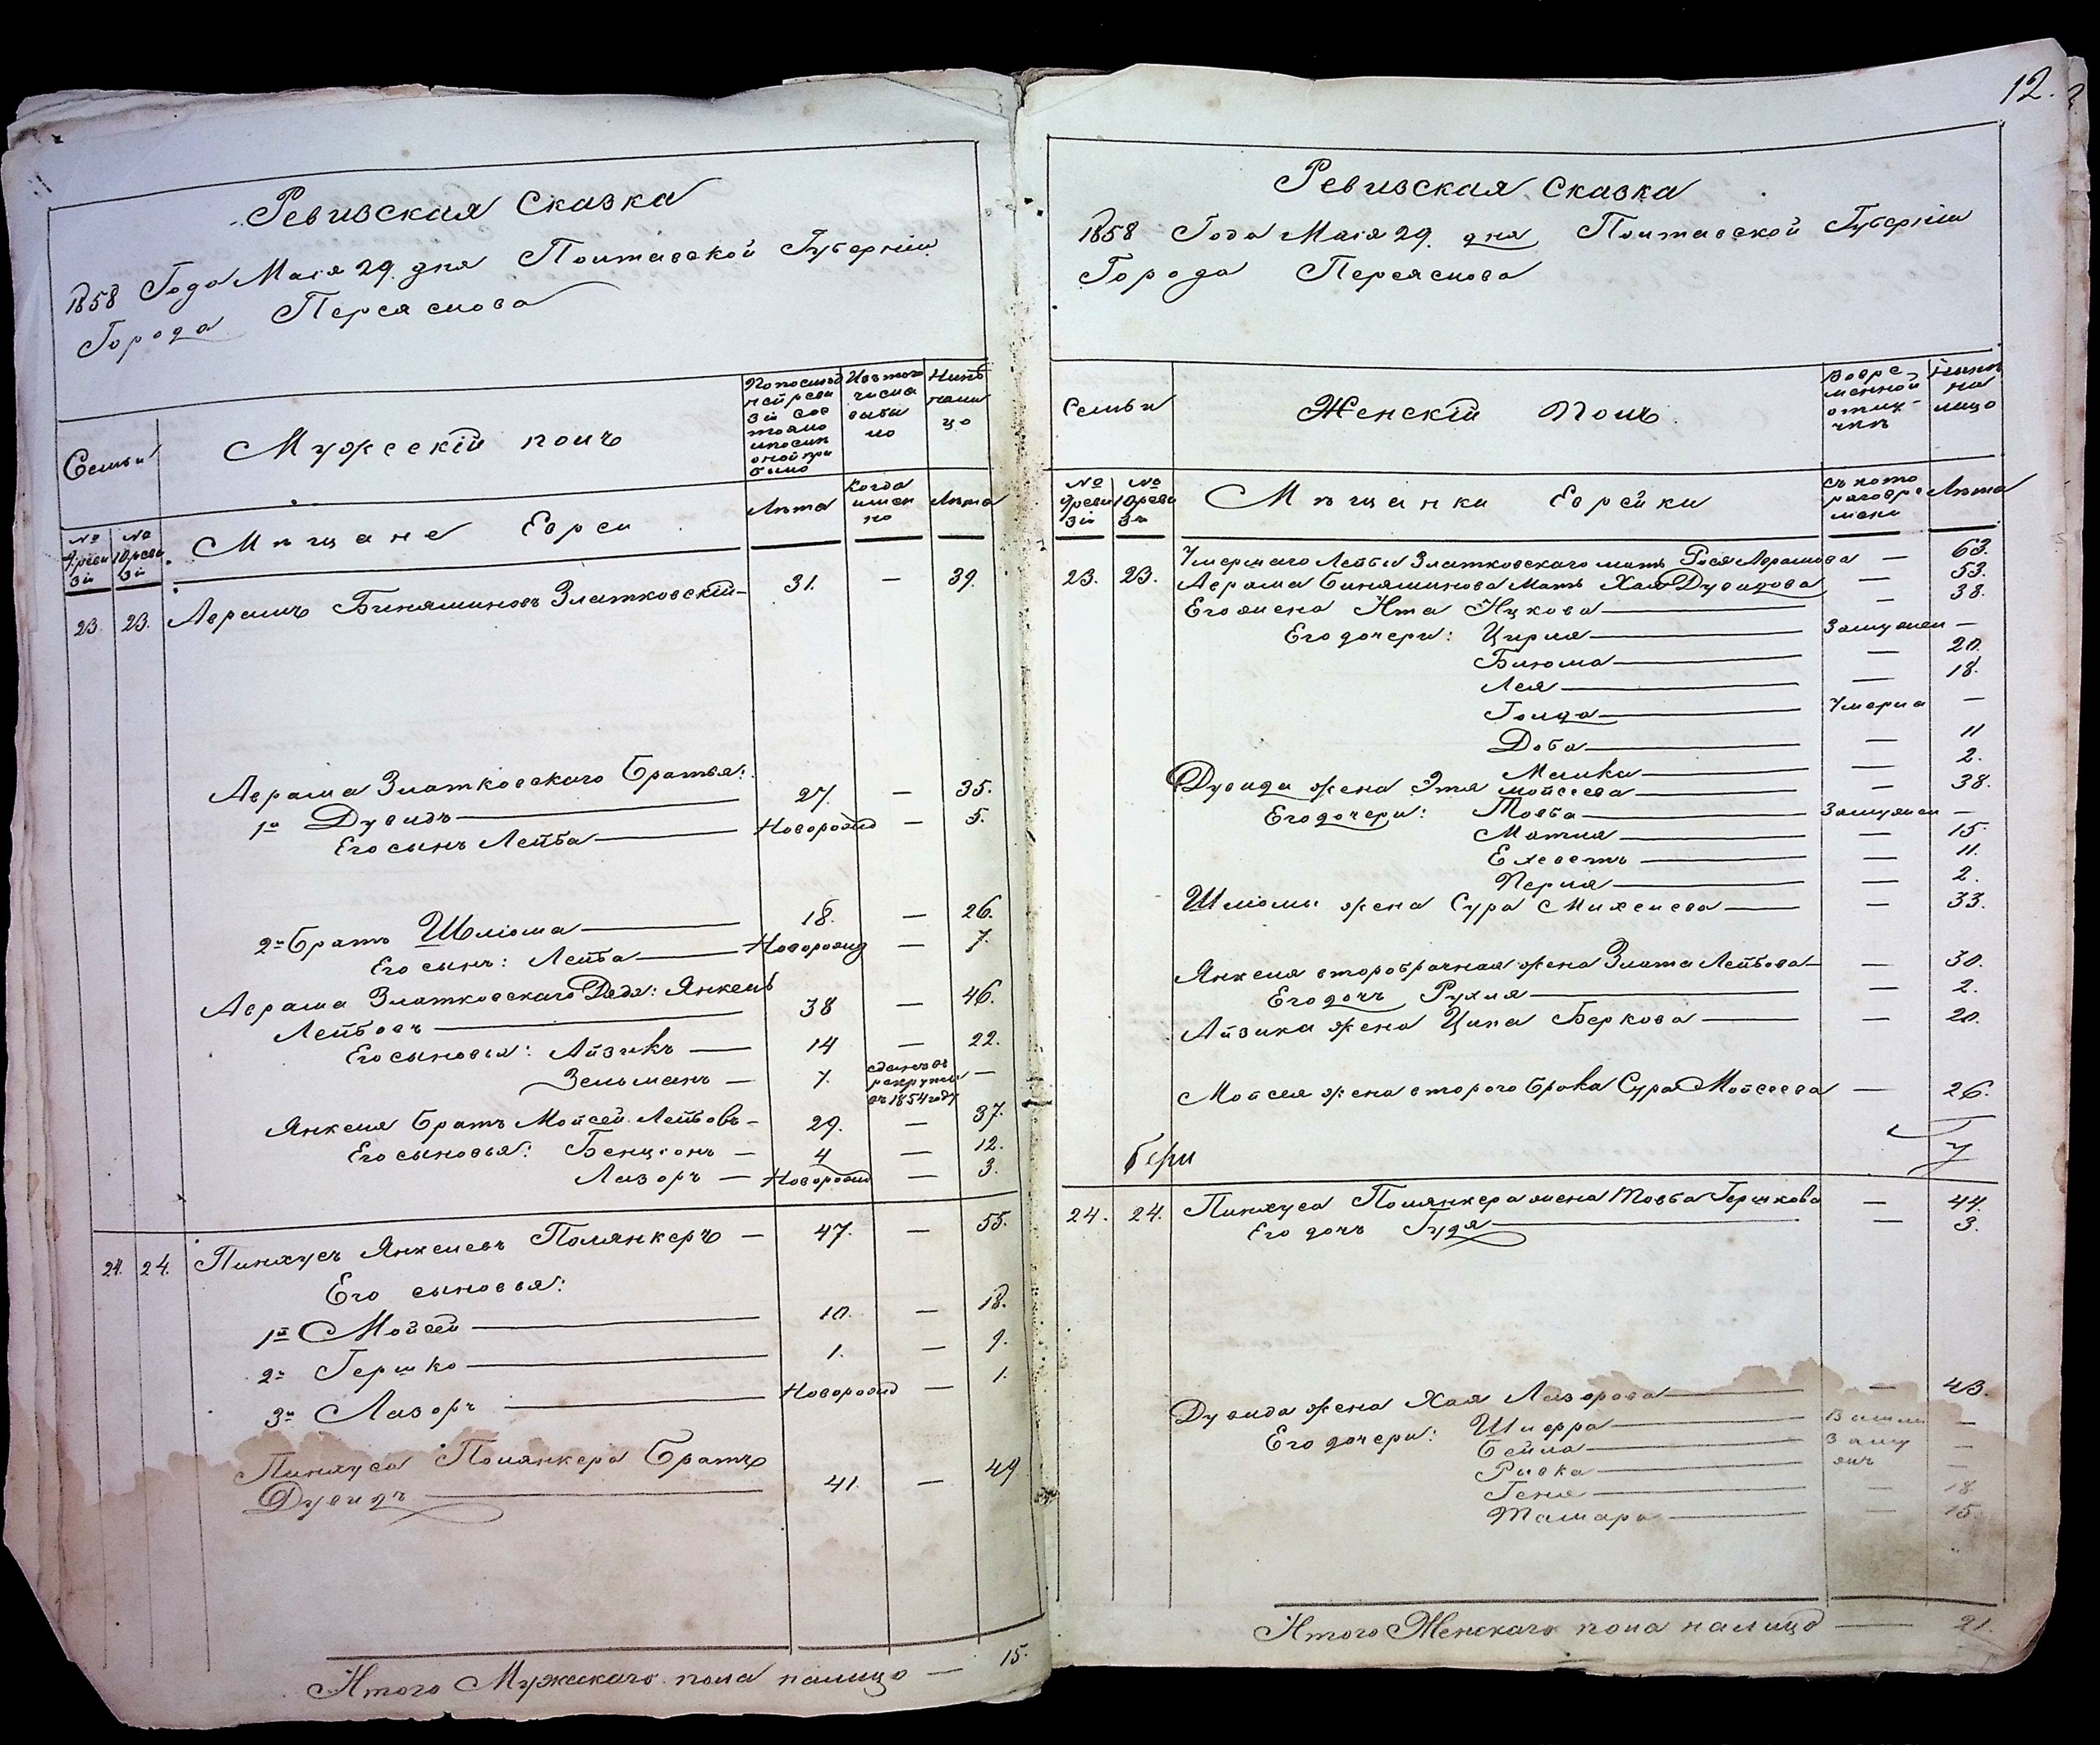 Ревизская Сказка
1858 Года Маія 29 дня Полтавской Губерніи
Города Переяслова
Семьи
Мужескій полъ
По послѣд
ней реви
зіи сос
тояло
и послѣ
оной при
было
Изъ того
числа
выбы
ло
Нынѣ
нали
цо
№
9 реви
зіи
№
10 реви
зіи
Мѣщане Евреи
Лѣта
Когда
имен
но
Лѣта
23. 23. Аврамъ Биняминовъ Златковскій — 31. — 39.
Аврама Златковскаго Братья:
1й Дувидъ — 27. — 35.
Его сынъ Лейба — Новорожд — 5.
2й Братъ Шліома — 18. — 26.
Его сынъ: Лейба — Новорожд — 7.
Аврама Златковскаго Дядя: Янкель
Лейбовъ — 38 — 46.
Его сыновья: Айзикъ — 14 — 22.
Зельманъ — 7. сданъ въ
рекруты
въ 1854 году —
Янкеля Братъ Мойсей Лейбовъ — 29. — 37.
Его сыновья: Бенціонъ — 4 — 12.
Лазоръ — Новорожд — 3.
24. 24. Пинхусъ Янкелевъ Полянкеръ — 47. — 55.
Его сыновья:
1й Мойсей — 10. — 18.
2й Гершко — 1. — 9.
3й Лазоръ — Новорожд — 1.
Пинхуса Полянкера Братъ
Дувидъ — 41. — 49
Итого Мужескаго пола налицо — 15.
12.
Ревизская Сказка
1858 Года Маія 29. дня Полтавской Губерніи
Города Переяслова
Семьи
Женскій Полъ
Вовре
менной
отлу-
чкѣ
Нынѣ
на
лицо
№
9 реви
зіи
№
10 реви
зіи
Мѣщанки Еврейки
съ кото
раго вре
мени
Лѣта
Умершаго Лейбы Златковскаго мать Рося Абрамова — 63.
23. 23. Аврама Биняминова Мать Хая Дувидова — 53.
Его жена Ита Ицкова — 38.
Его дочери: Цирля — Замужем —
Блюма — 20.
Лея — 18.
Голда — Умерла —
Доба — 11
Малка — 2.
Дувида жена Этя Мойсеева — 38.
Его дочери: Товба — Замужем —
Матля — 15.
Елеветь — 11.
Перля — 2.
Шліомы жена Сура Михелева — 33.
Янкеля второбрачная жена Злата Лейбова — 30.
Его дочь Рухля — 2.
Айзика жена Ципа Беркова — 20.
Мойсея жена второго брака Сура Мойсеева — 26.
24. 24. Пинхуса Полянкера жена Товба Гершкова — 44.
Его дочь Гудя — 3.
Дувида жена Хая Лазорова — 43.
Его дочери: Шифра — Вышли —
Бейла — Заму —
Ривка — жъ —
Геня — 18.
Тамара — 15.
Итого Женскаго пола налицо — 21.